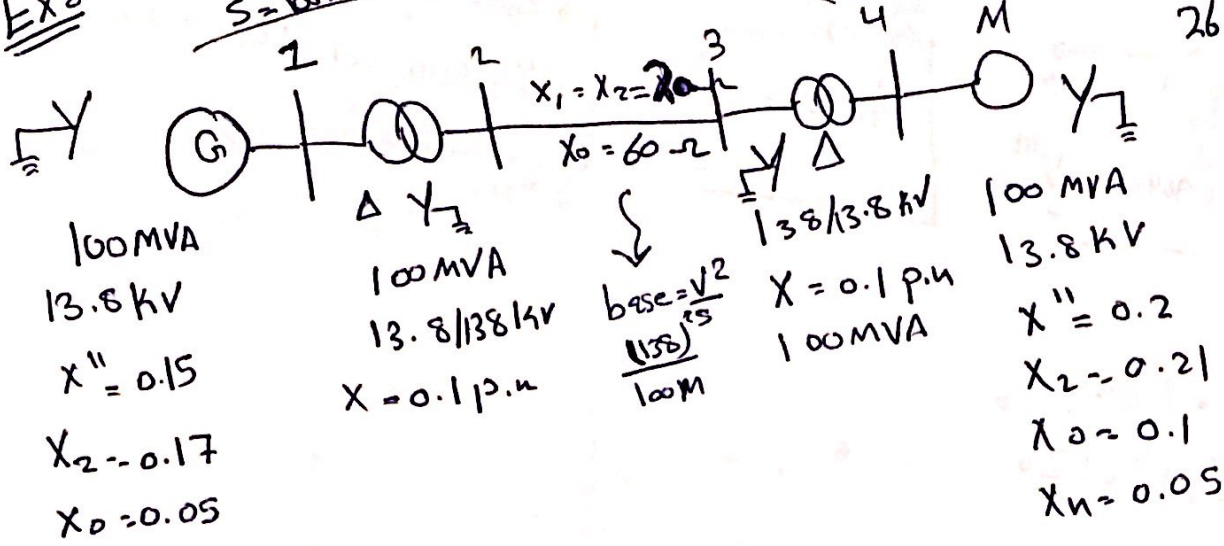 Ex:
S=100
26
1
2
3
4
M
X₁ = X₂ = 20 Ω
X₀ = 60 Ω
G
Δ Y
Y Δ
Y
100 MVA
13.8 KV
X" = 0.15
X₂ = 0.17
X₀ = 0.05
100 MVA
13.8/138 KV
X = 0.1 p.u
base = V²/S
(138)²/100M
138/13.8 KV
X = 0.1 p.u
100 MVA
100 MVA
13.8 KV
X" = 0.2
X₂ = 0.21
X₀ = 0.1
Xn = 0.05